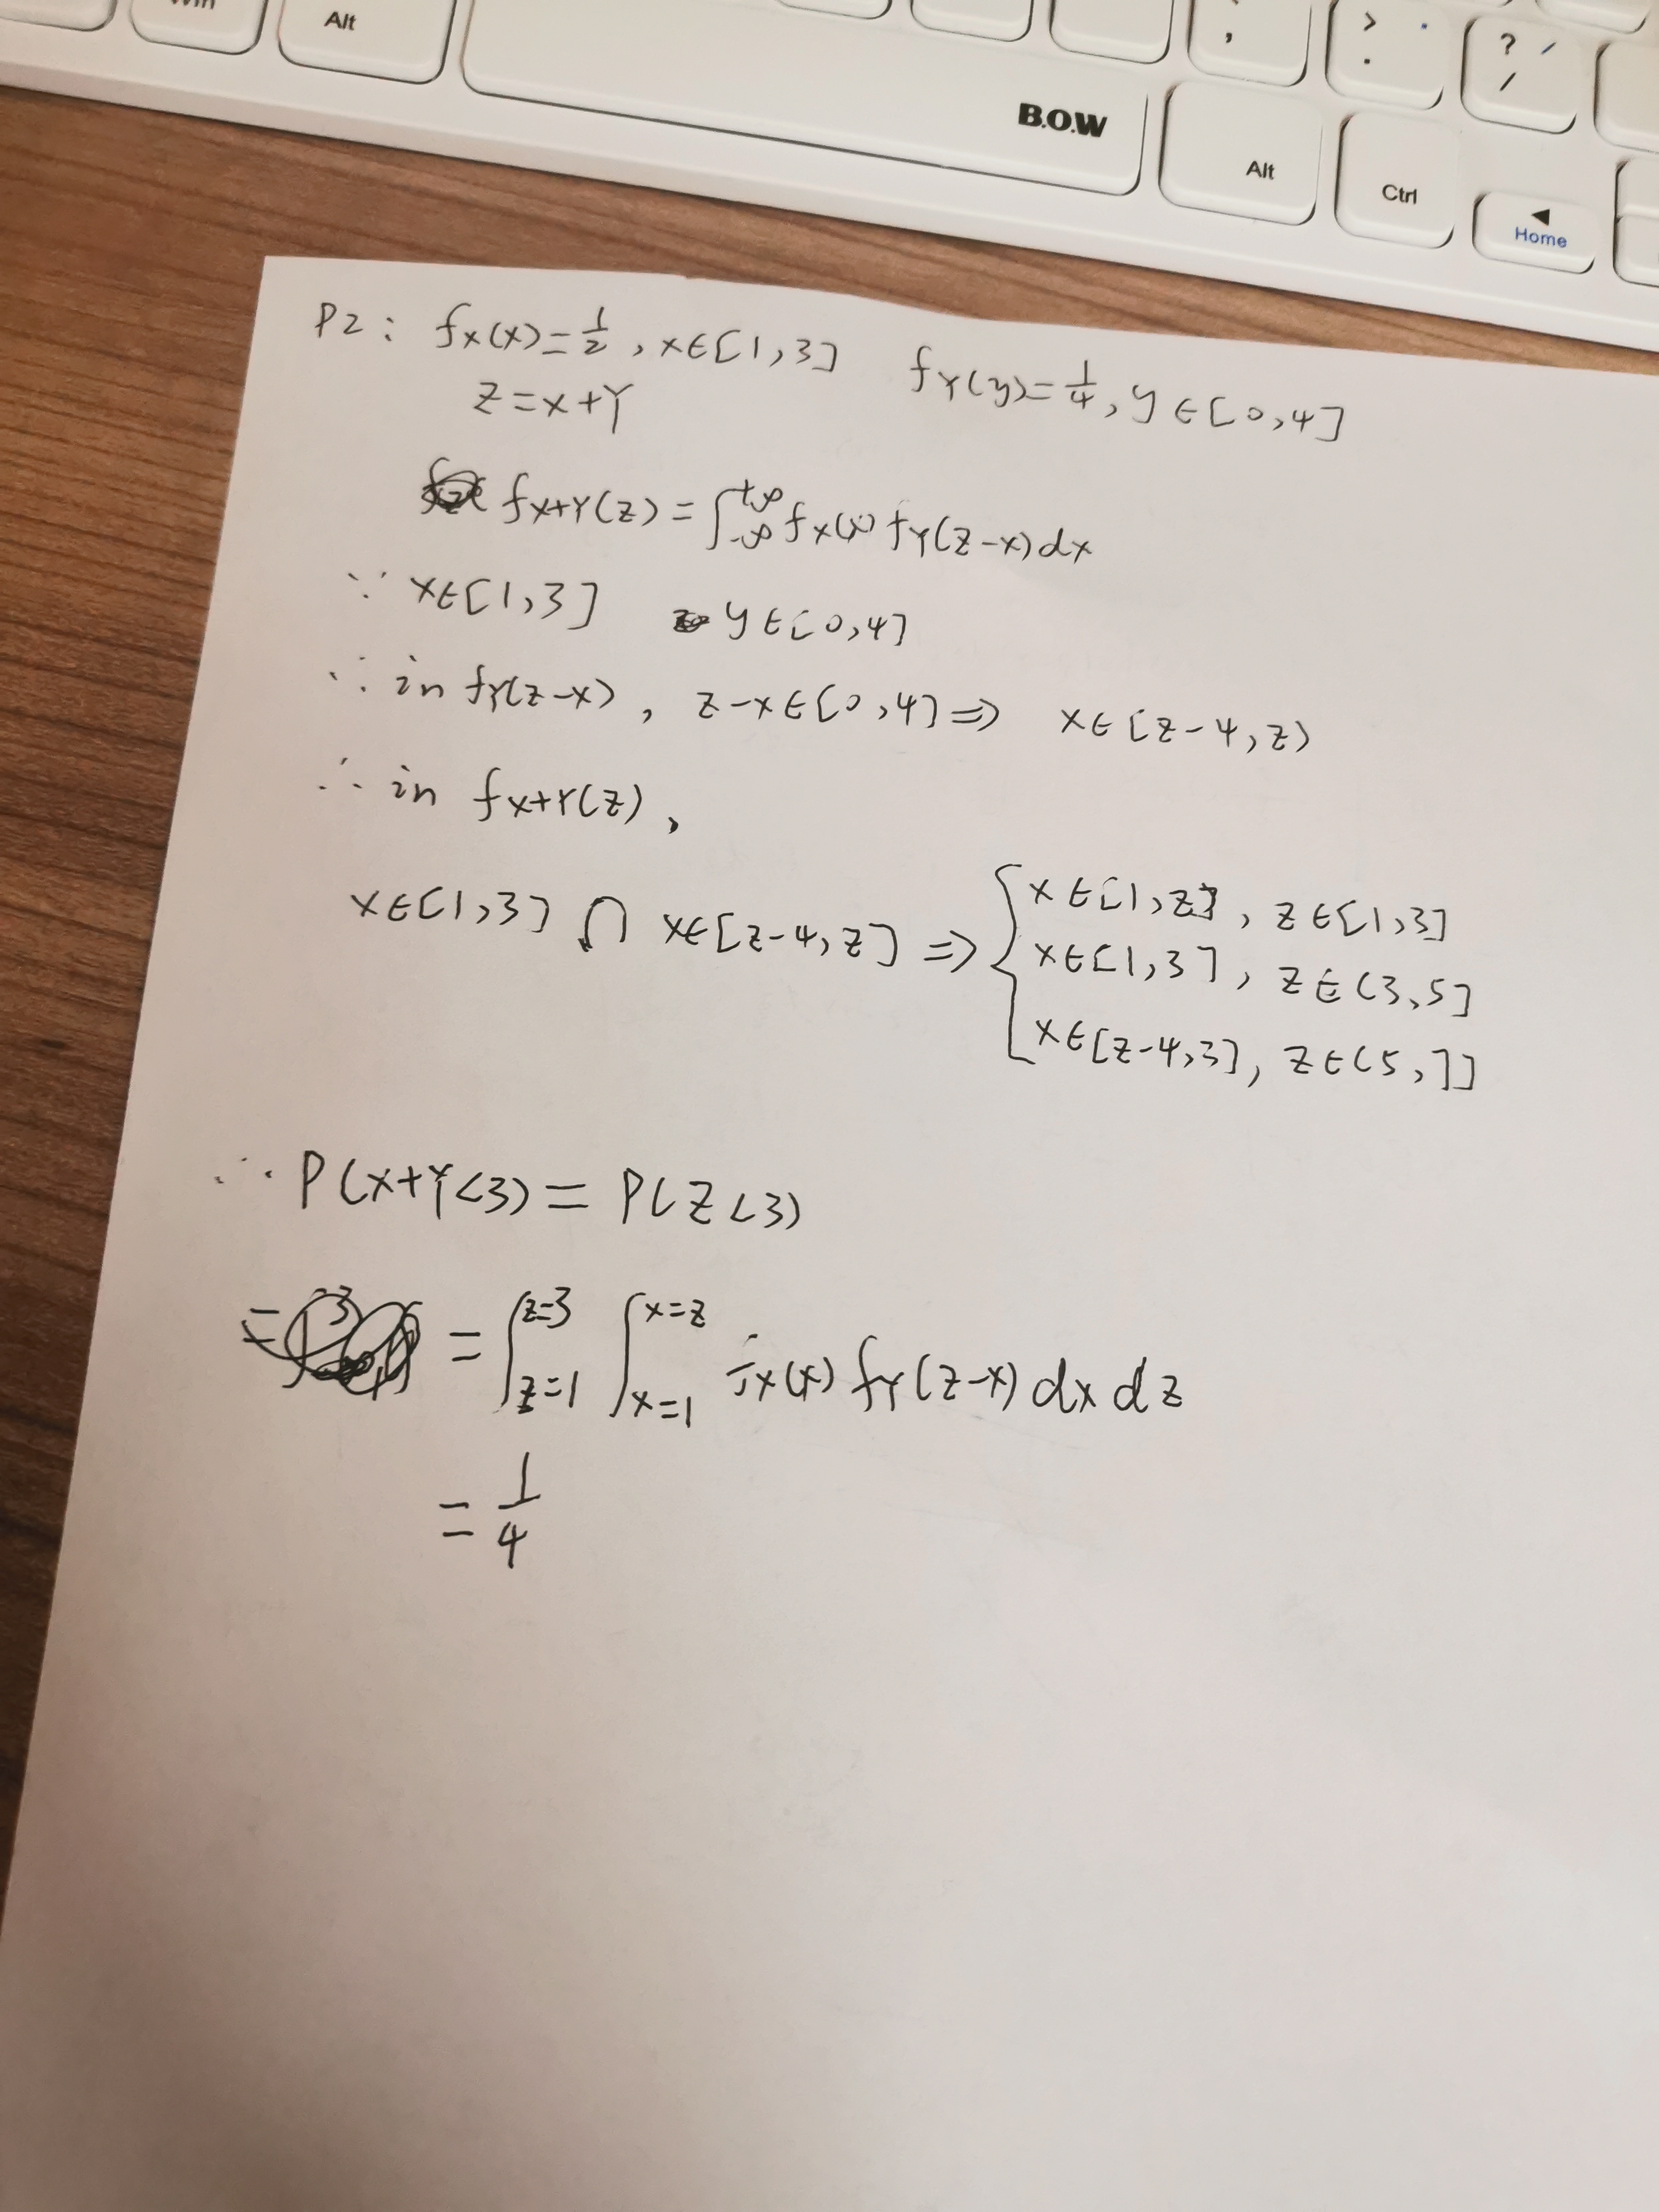 Win Alt
B.O.W
Alt
Ctrl
◀ Home
, > . ? /
P2: fX(x)=1/2, x∈[1,3] fY(y)=1/4, y∈[0,4]
Z=X+Y
fX+Y(z)=∫-∞+∞ fX(x) fY(z-x)dx
∵ x∈[1,3] y∈[0,4]
∴ in fY(z-x), z-x∈[0,4] ⇒ x∈[z-4,z)
∴ in fX+Y(z),
x∈[1,3] ∩ x∈[z-4,z] ⇒ { x∈[1,z], z∈[1,3]
x∈[1,3], z∈(3,5]
x∈[z-4,3], z∈(5,7]
∴ P(X+Y<3) = P(Z<3)
= = ∫z=1z=3 ∫x=1x=z fX(x) fY(z-x) dx dz
= 1/4